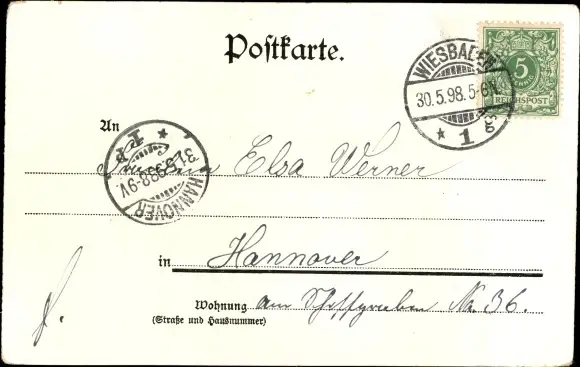 Postkarte.
WIESBADEN
30.5.98.5-6N.
* 1
5
REICHSPOST
An
Fräulein Elsa Werner
HANNOVER
31.5.98.8-9V.
* 1 *
in Hannover
Wohnung am Schiffgraben No. 36.
(Straße und Hausnummer)